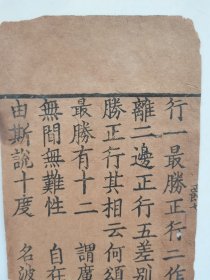 行一最勝正行二作
離二邊正行五差別
勝正行其相云何頌
最勝有十二　謂廣
無間無難性　自在
由斯說十度　名波